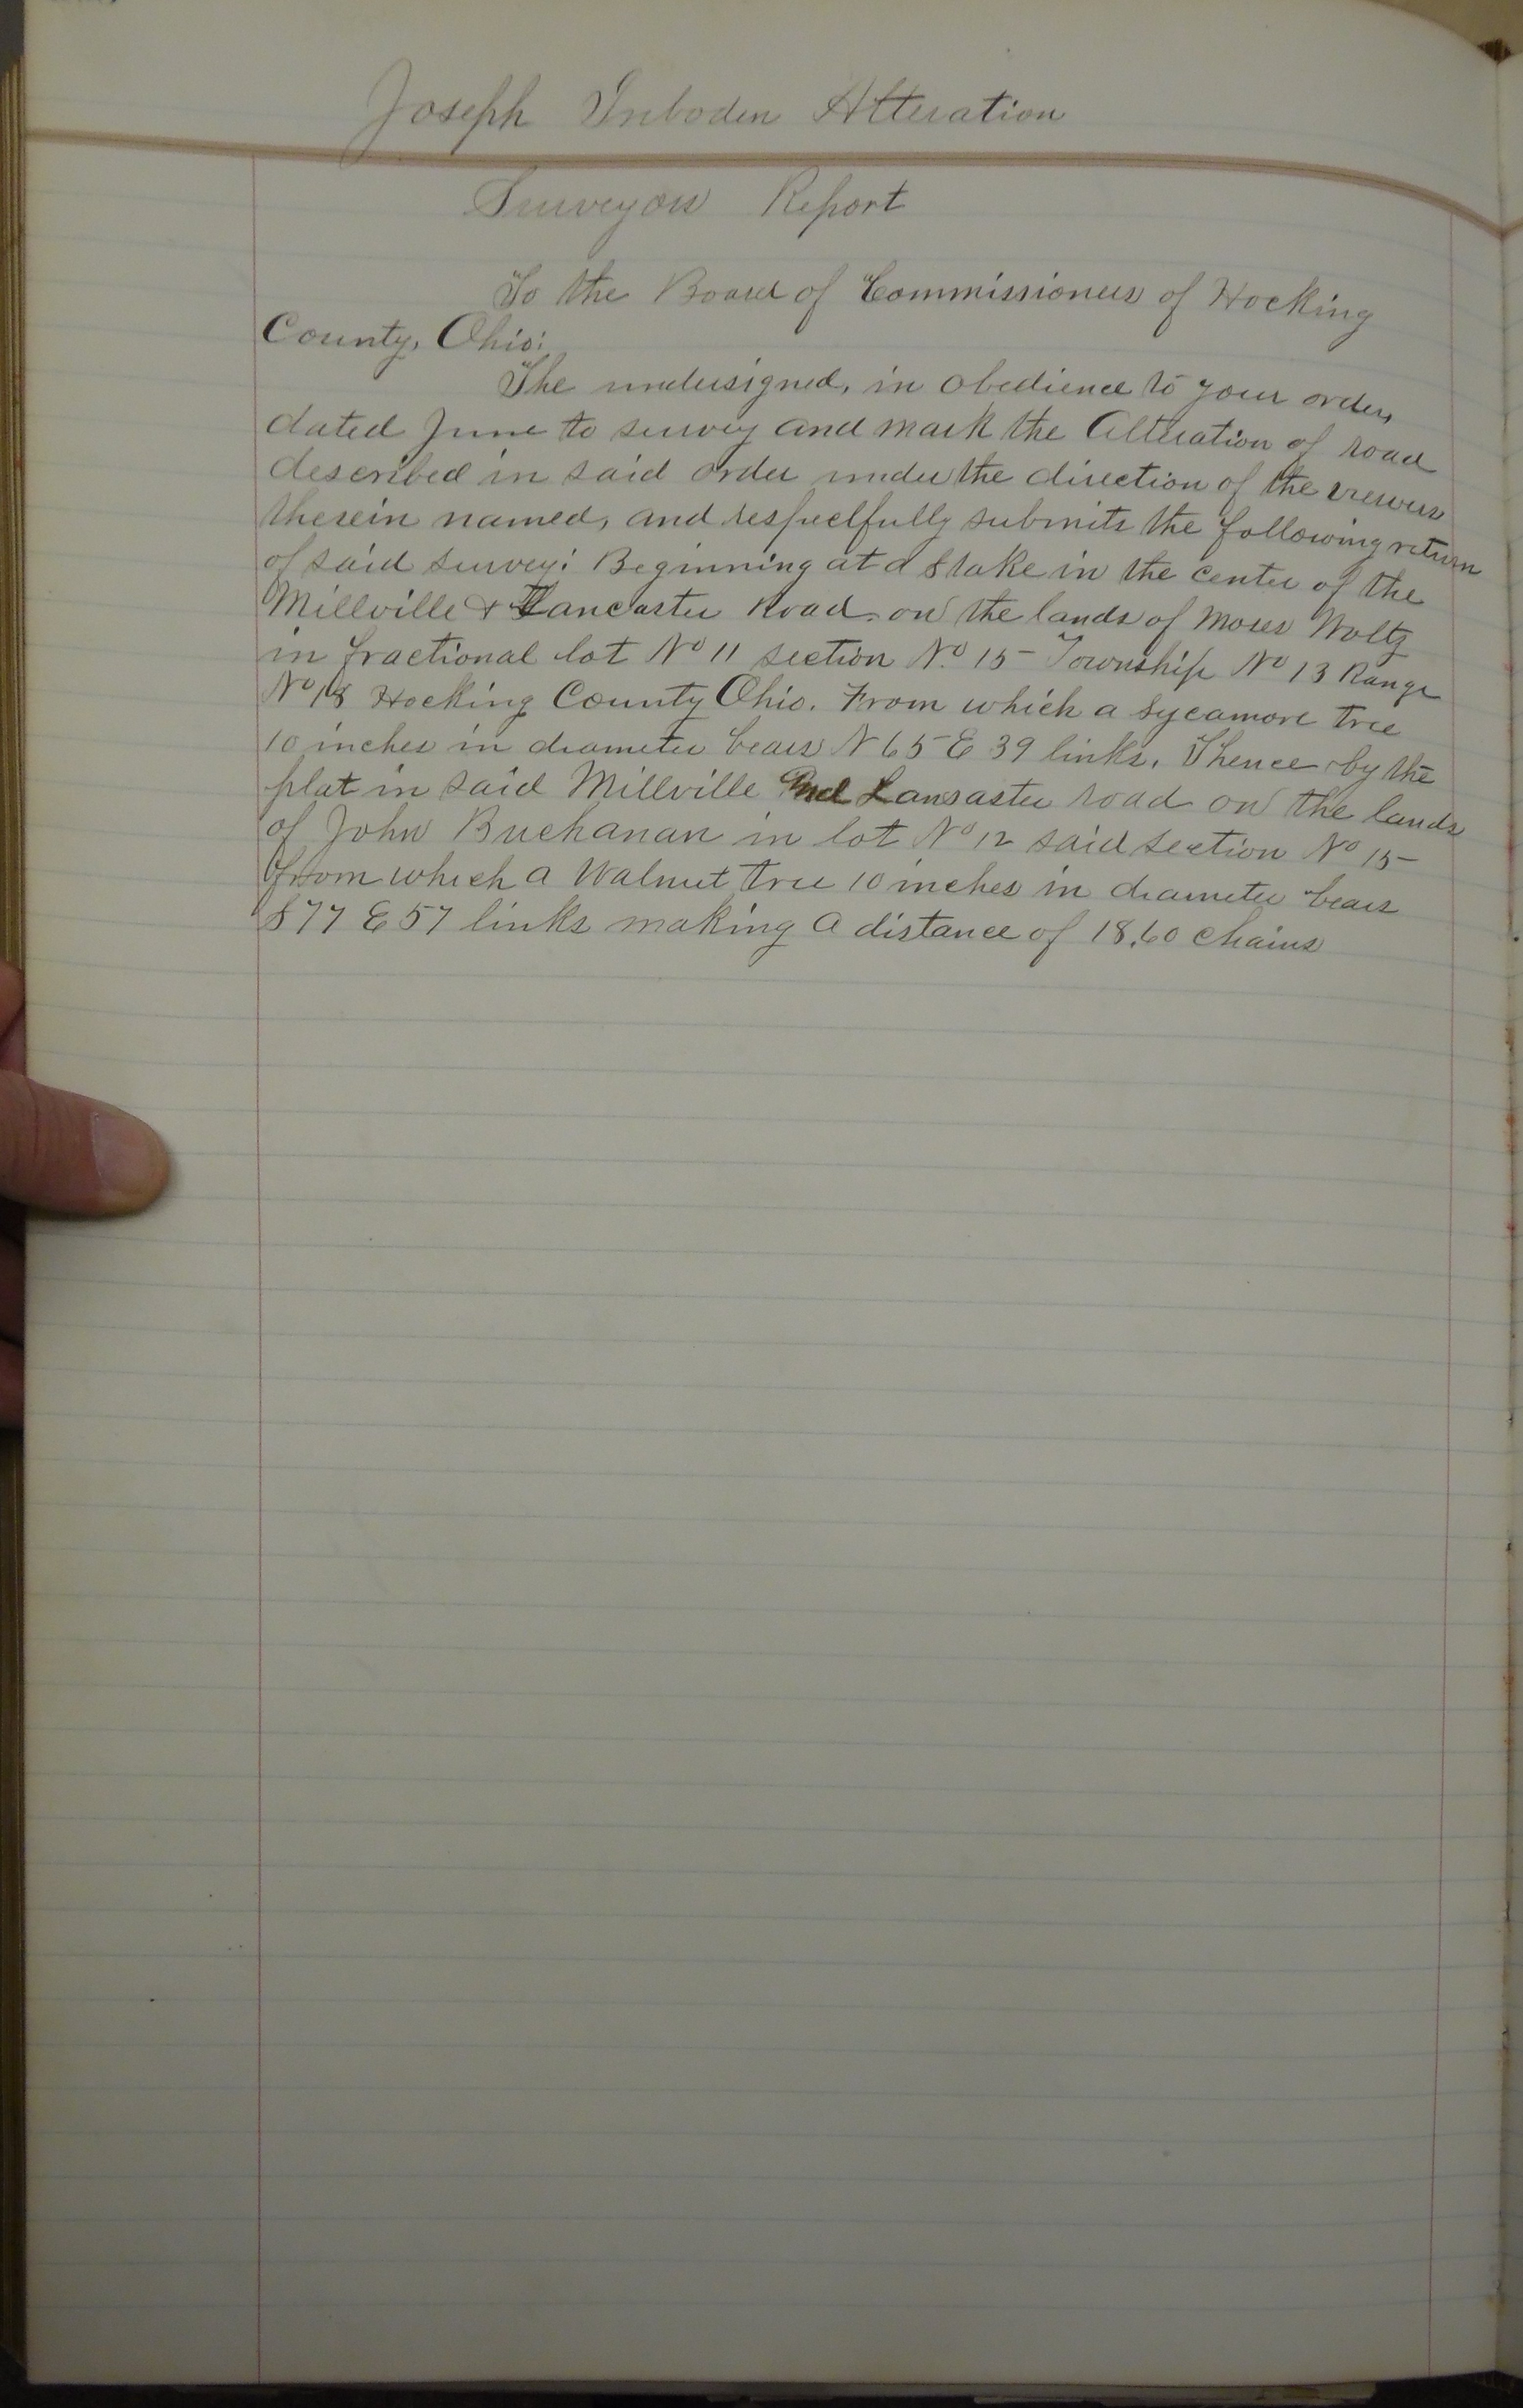 Joseph Inboden Alteration
Surveyors Report
To the Board of Commissioners of Hocking
County, Ohio:
The undersigned, in obedience to your order,
dated June to survey and mark the Alteration of road
described in said order under the direction of the viewers
therein named, and respectfully submits the following return
of said survey: Beginning at a Stake in the center of the
Millville & Lancaster Road on the lands of Moses Woltz
in fractional lot No 11 section No. 15 Township No 13 Range
No 18 Hocking County Ohio. From which a Sycamore tree
10 inches in diameter bears N 65 E 39 links. Thence by the
plat in said Millville And Lansaster road on the lands
of John Buchanan in lot No 12 said section No 15
from which a Walnut tree 10 inches in diameter bears
S 77 E 57 links making a distance of 18.60 chains